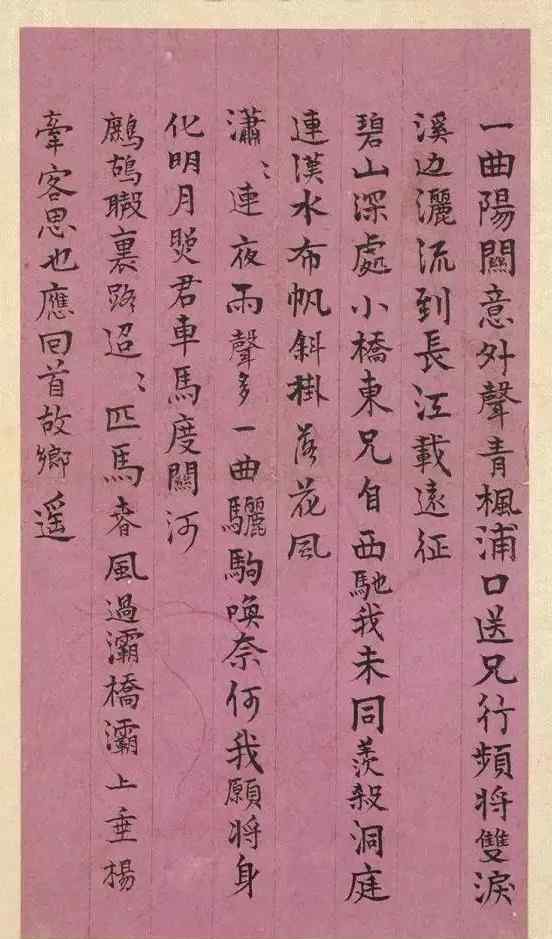 一曲陽關意外聲青楓浦口送兄行頻將雙淚
溪边灑流到長江載遠征
碧山深處小橋東兄自西馳我未同羨殺洞庭
連漢水布帆斜掛落花風
瀟〻連夜雨聲多一曲驪駒喚奈何我願將身
化明月照君車馬度關河
鷓鴣聲裏路迢〻匹馬春風過灞橋灞上垂楊
牽客思也應回首故鄉遥